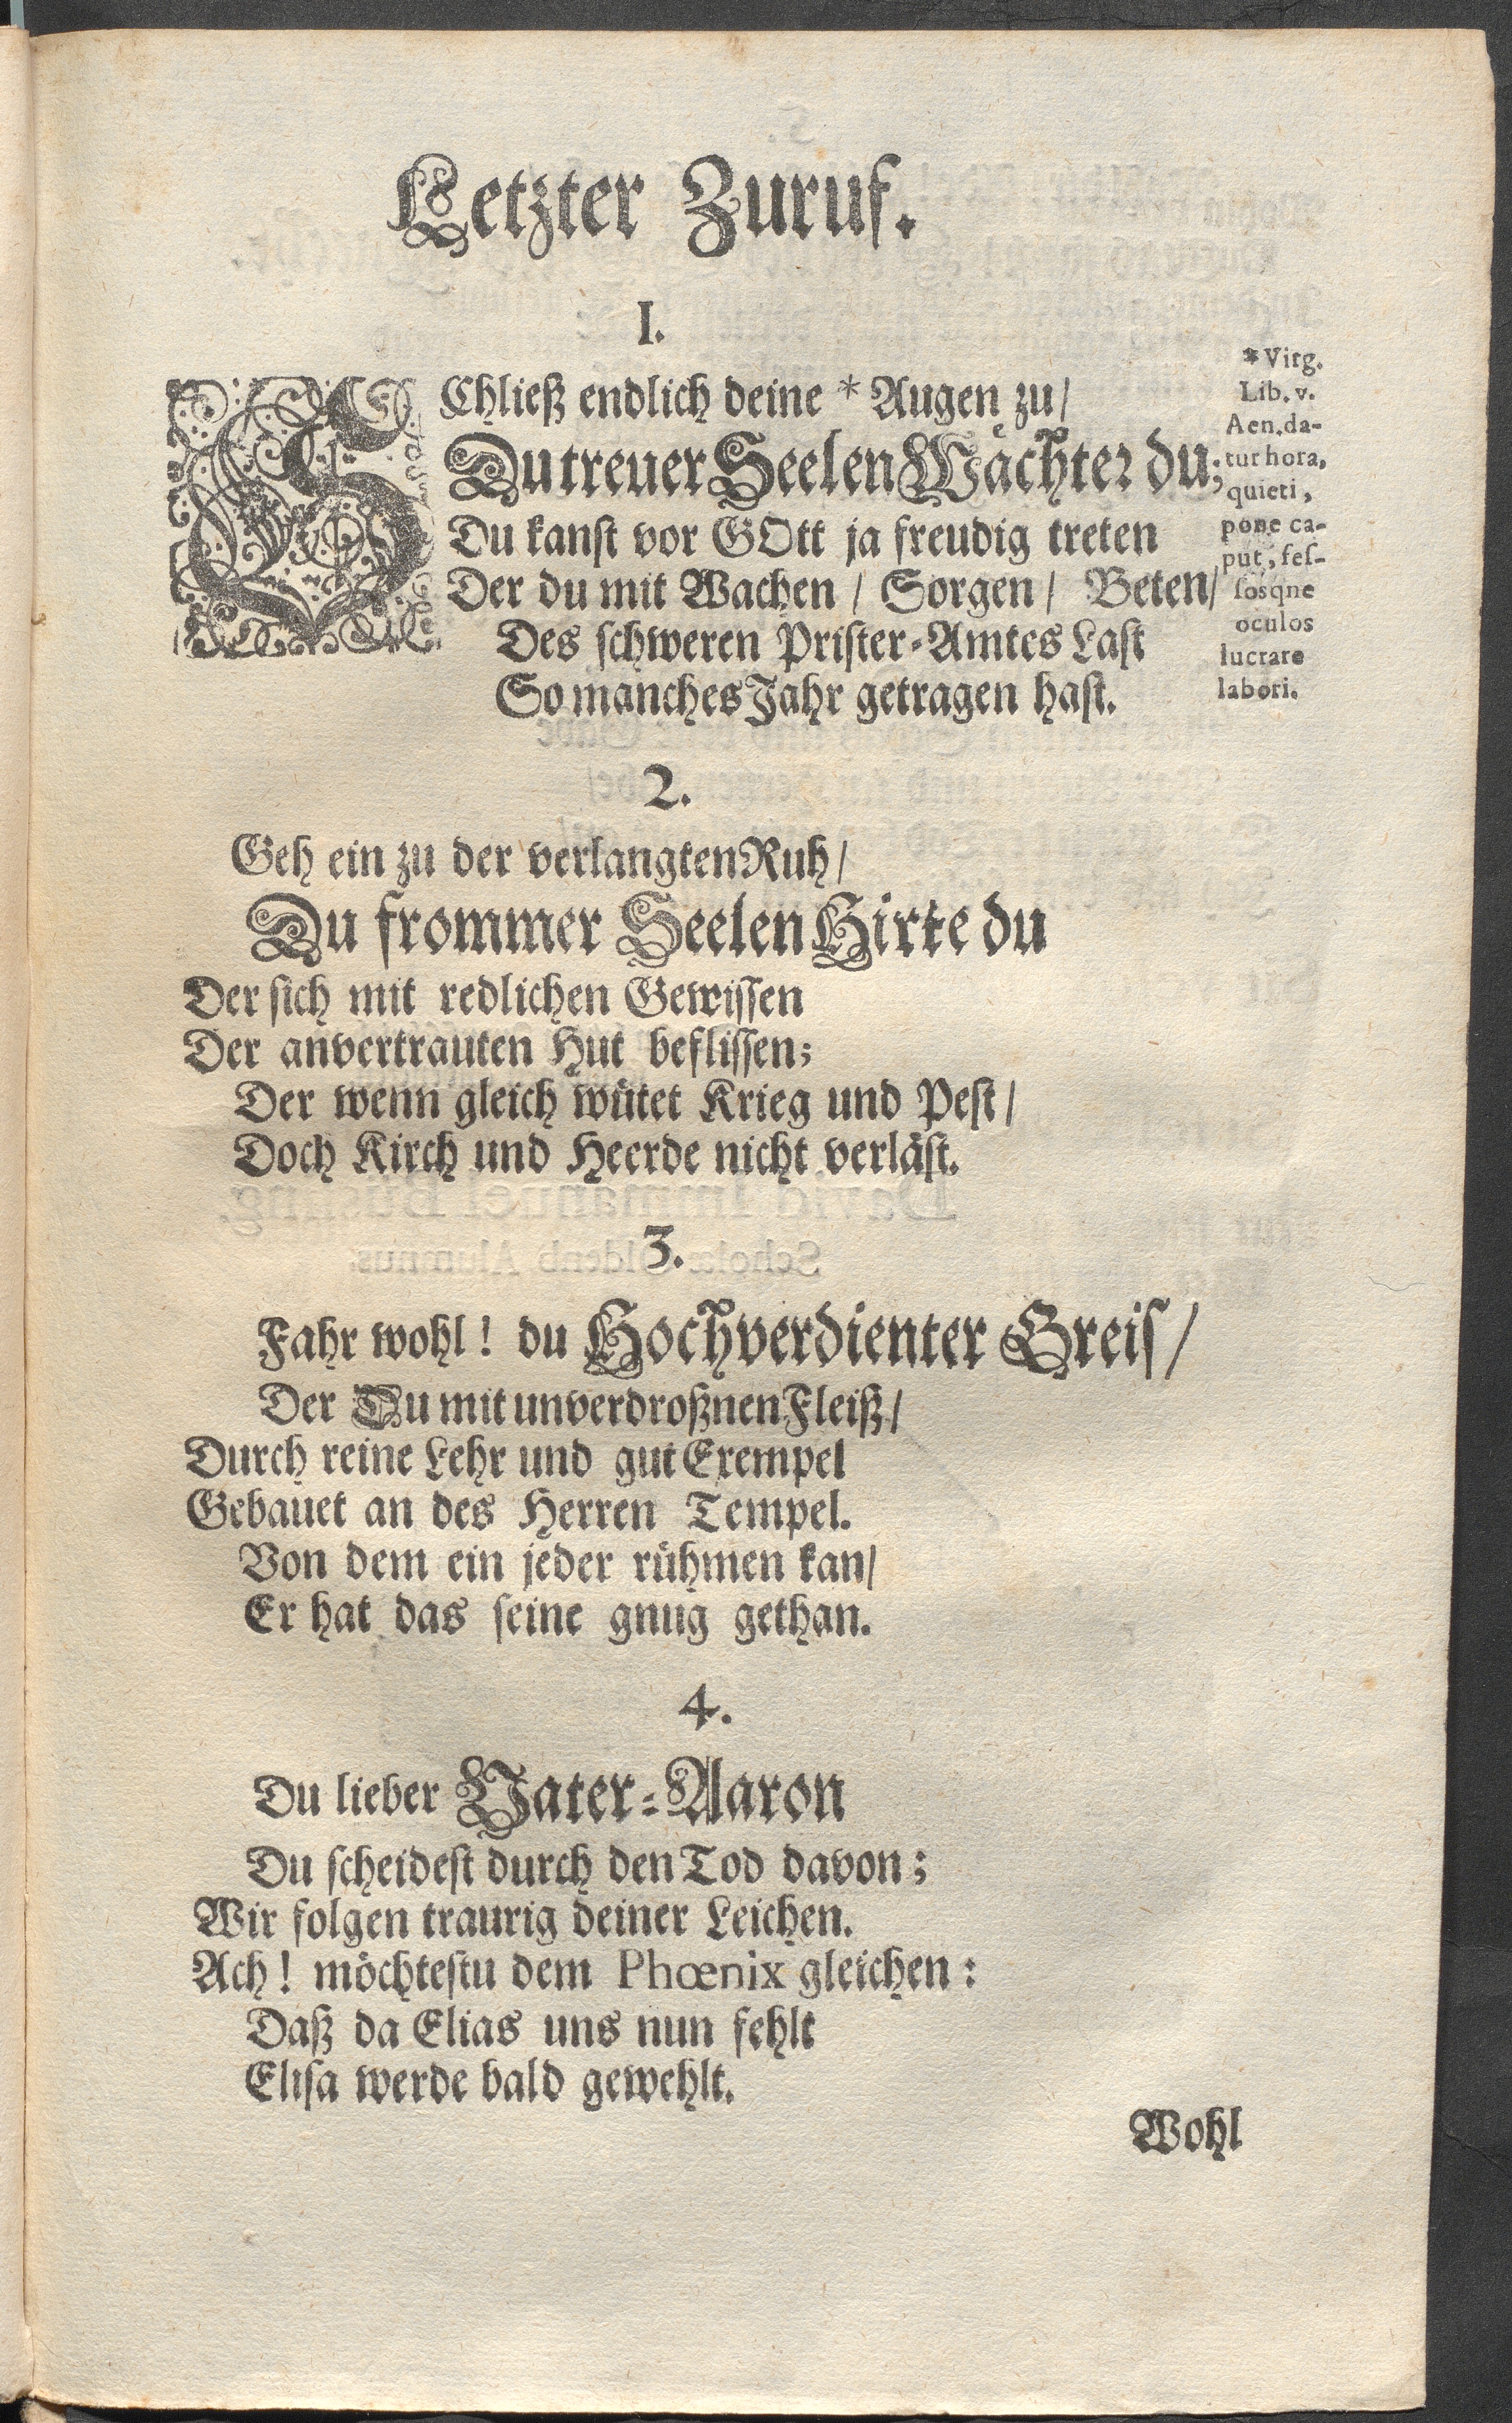 Letzter Zuruf.
I.
SChließ endlich deine * Augen zu/
Du treuer Seelen Wächter du;
Du kanst vor GOtt ja freudig treten
Der du mit Wachen / Sorgen / Beten/
Des schweren Prister-Amtes Last
So manches Jahr getragen hast.
* Virg.
Lib. v.
Aen. da-
tur hora,
quieti,
pone ca-
put, fes-
sosqne
oculos
lucrare
labori.
2.
Geh ein zu der verlangten Ruh/
Du frommer Seelen Hirte du
Der sich mit redlichen Gewissen
Der anvertrauten Hut beflissen;
Der wenn gleich wütet Krieg und Pest/
Doch Kirch und Heerde nicht verläst.
3.
Fahr wohl! du Hochverdienter Greis/
Der Du mit unverdroßnen Fleiß/
Durch reine Lehr und gut Exempel
Gebauet an des Herren Tempel.
Von dem ein jeder rühmen kan/
Er hat das seine gnug gethan.
4.
Du lieber Vater-Aaron
Du scheidest durch den Tod davon;
Wir folgen traurig deiner Leichen.
Ach! möchtestu dem Phœnix gleichen:
Daß da Elias uns nun fehlt
Elisa werde bald gewehlt.
Wohl